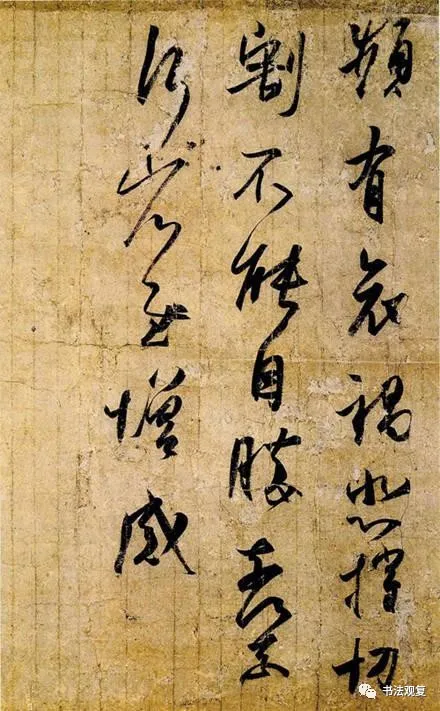 頻有哀禍悲摧切
割不能自勝奈何奈
何省慰增感
书法观复